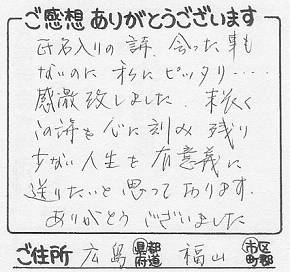 ご感想 ありがとうございます
氏名入りの詩、会った事も
ないのに 私にピッタリ‥‥
感激致しました。末長く
この詩を心に刻み 残り
少ない人生を 有意義に
送りたいと思っております。
ありがとう ございました
ご住所 広島 都道府県 福山 市区町郡